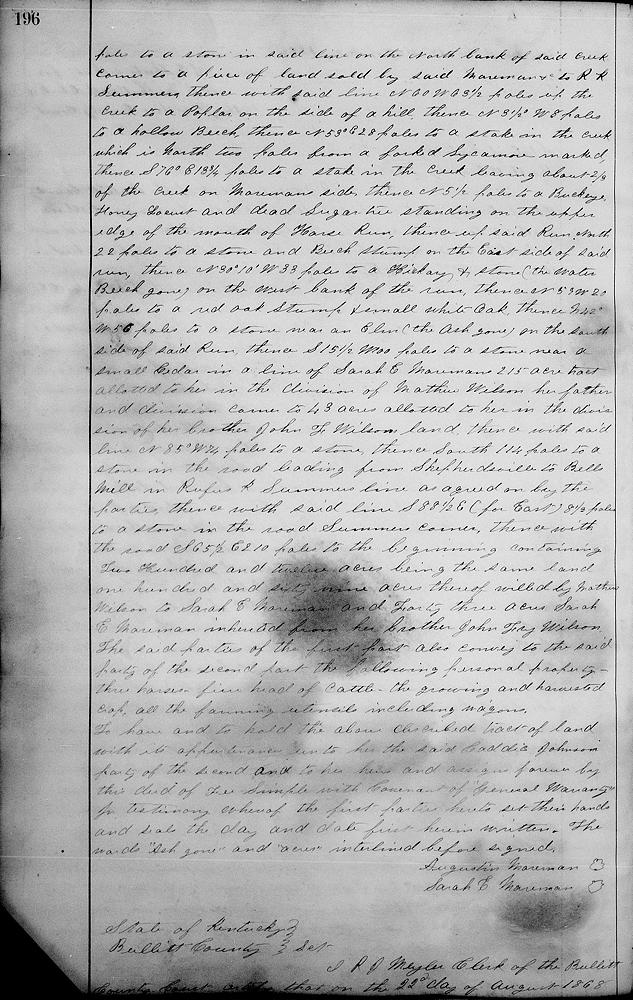 196
poles to a stone in said line on the North bank of said Creek
Corner to a piece of land sold by said Mareman to R R
Summers, thence with said line N 60 W 63 1/2 poles up the
Creek to a Poplar on the side of a hill, thence N 3 1/2° W 8 poles
to a hollow Beech, thence N 53° E 28 poles to a stake in the creek
which is North two poles from a forked Sycamore marked,
thence S 76° E 13 3/4 poles to a stake in the Creek leaving about 2/3
of the Creek on Maremans side, thence N 5 1/2 poles to a Buckeye,
Honey Locust and dead Sugar tree standing on the upper
edge of the mouth of Horse Run, thence up said Run North
22 poles to a stone and Beech Stump on the East side of said
run, thence N 30° 10' W 33 poles to a Hickory & stone (the Water
Beech gone) on the West bank of the run, thence N 53 W 20
poles to a red oak Stump & small white Oak, thence N 42°
W 56 poles to a stone near an Elm (the Ash gone) on the South
side of said Run, thence S 15 1/2 W poles to a stone near a
small Cedar in a line of Sarah E Maremans 215 acre tract
allotted to her in the division of Mathew Wilson her father
and division corner to 43 acres allotted to her in the divis
sion of her brother John F Wilson land, thence with said
line N 85° W 74 poles to a stone, thence South 114 poles to a
stone in the road leading from Shepherdsville to Bells
Mill in Rufus R Summers line as agreed on by the
parties, thence with said line S 88 1/2 E (for East) 8 1/2 poles
to a stone in the road Summers corner, thence with
the road S 65 1/2 E 210 poles to the beginning containing
Two Hundred and twelve acres being the same land
one hundred and sixty nine acres thereof willed by Mathew
Wilson to Sarah E Mareman and Forty three acres Sarah
E Mareman inherited from her brother John Fry Wilson
The said parties of the first part also convey to the said
party of the second part the following personal property—
three horses— five head of Cattle— the growing and harvested
Crop, all the farming utensils including wagons,
To have and to hold the above described tract of land
with its appertenances unto her the said Caddie Johnson
party of the second and to her heirs and assigns forever by
this deed of Fee Simple with Covenant of "General Waranty"
In testimony whereof the first parties hereto set their hands
and seals the day and date first herein written. The
words "Ash gone" and "acres" interlined before signed,
Augustin Mareman
Sarah E Mareman
State of Kentucky }
Bullitt County } Sct
I R J Meyler Clerk of the Bullitt
County Court certify that on the 22d day of August 1868